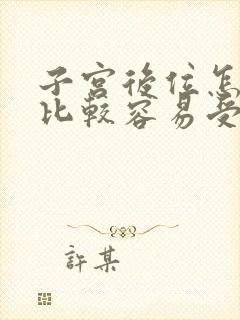 子宮後位怎
比較容易受
許某